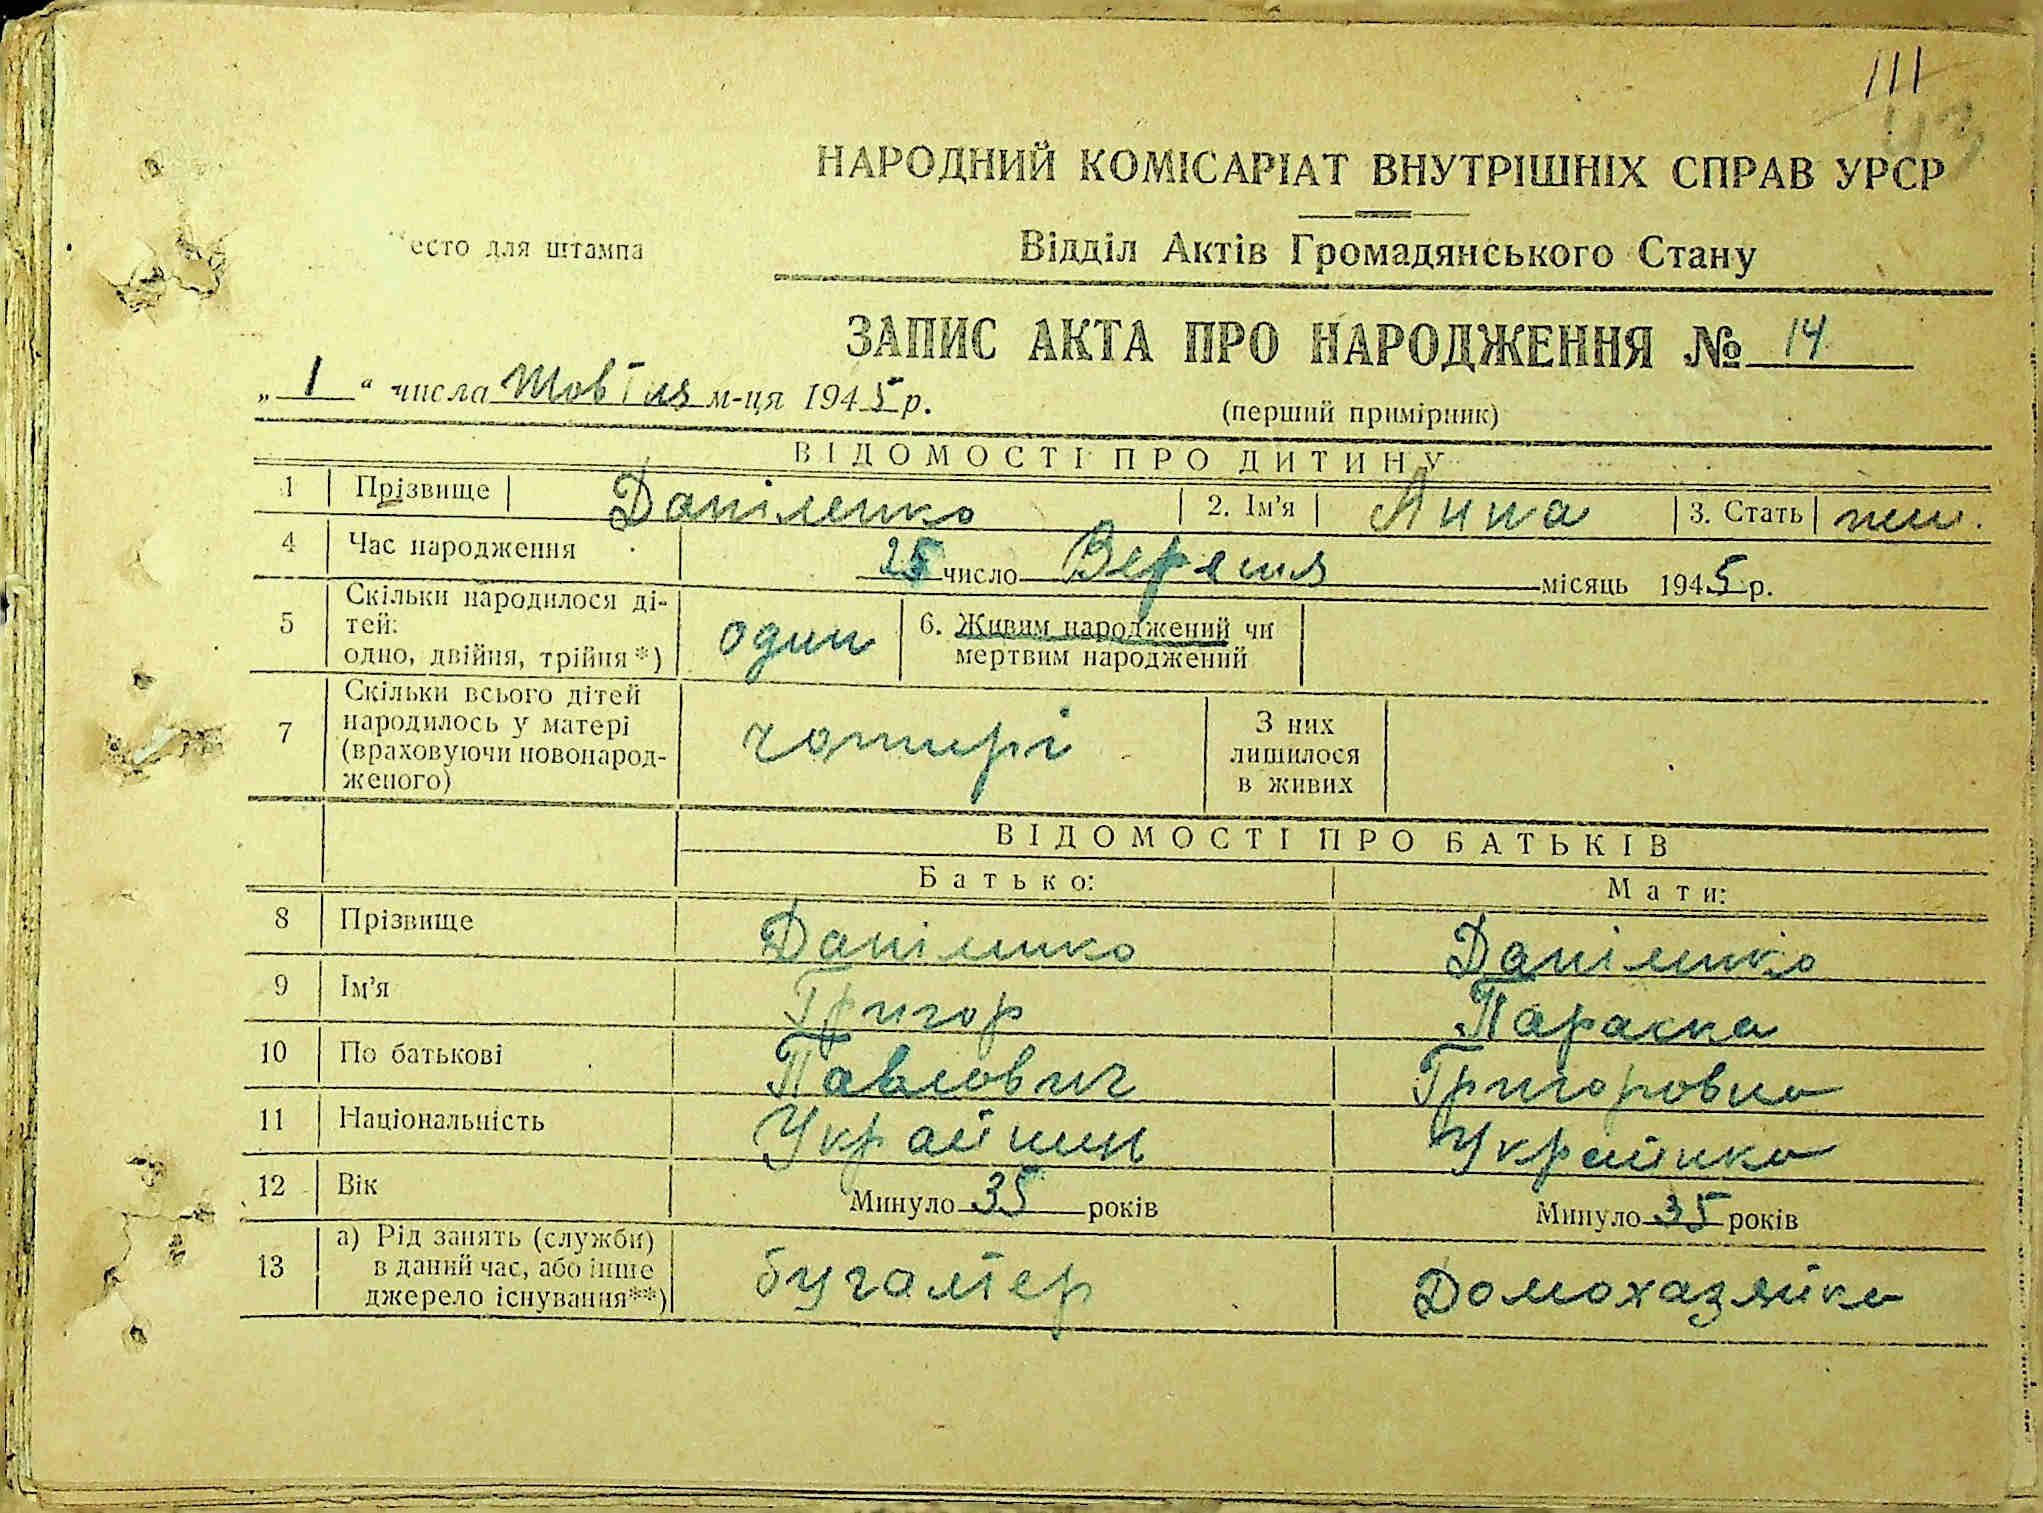 111
43
НАРОДНИЙ КОМІСАРІАТ ВНУТРІШНІХ СПРАВ УРСР
есто для штампа
Відділ Актів Громадянського Стану
ЗАПИС АКТА ПРО НАРОДЖЕННЯ № 14
„ 1 “ числа Жовтня м-ця 1945 р.
(перший примірник)
ВІДОМОСТІ ПРО ДИТИНУ
1 Прізвище Даніленко 2. Ім’я Анна 3. Стать жін.
4 Час народження 25 число Вересня місяць 1945 р.
5 Скільки народилося ді-
тей:
одно, двійня, трійня*) один 6. Живим народжений чи
мертвим народжений
7 Скільки всього дітей
народилось у матері
(враховуючи новонарод-
женого) чотирі З них
лишилося
в живих
ВІДОМОСТІ ПРО БАТЬКІВ
Батько: Мати:
8 Прізвище Даніленко Даніленко
9 Ім’я Григор Параска
10 По батькові Павлович Григоровна
11 Національність Українин Українка
12 Вік Минуло 35 років Минуло 35 років
13 а) Рід занять (служби)
в даний час, або інше
джерело існування**) бугалтер Домохазяйка